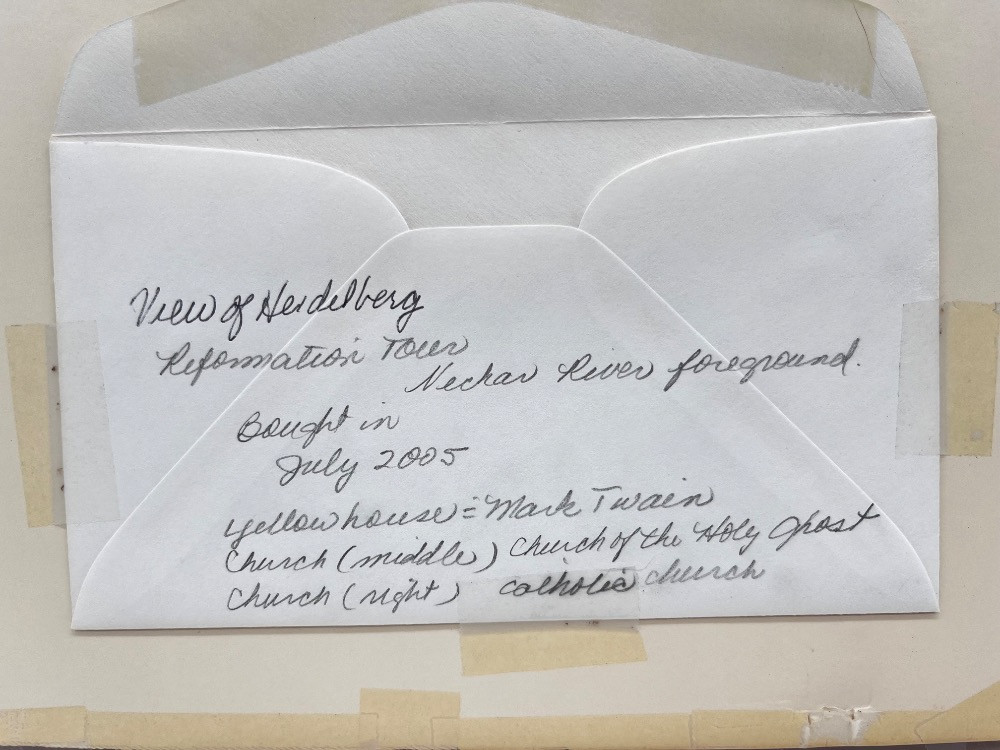 View of Heidelberg
Reformation Tour
Neckar River foreground.
Bought in
July 2005
yellow house = Mark Twain
Church (middle) Church of the Holy Ghost
Church (right) Catholic church